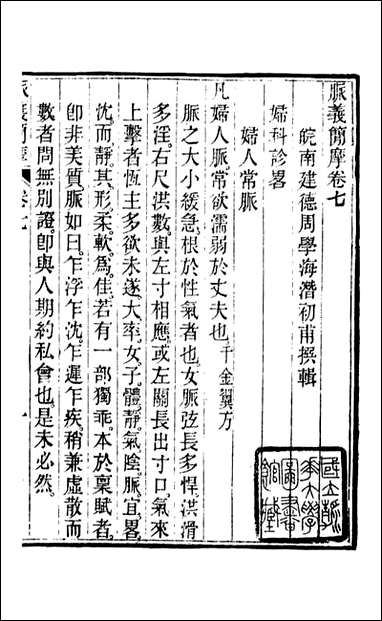 脈義簡摩卷七
皖南建德周學海潛初甫撰輯
婦科診畧
婦人常脈
凡婦人脈常欲濡弱於丈夫也千金翼方
脈之大小緩急根於性氣者也女脈弦長多悍洪滑
多淫右尺洪數與左寸相應或左關長出寸口氣來
上擊者恆主多欲未遂大率女子體靜氣陰脈宜畧
沈而靜其形柔軟為佳若有一部獨乖本於稟賦者
卽非美質脈如日乍浮乍沈乍遲乍疾稍兼虛散而
數者問無別證卽與人期約私會也是未必然
脈義簡摩 卷七 一
國立
大學
圖書
館藏